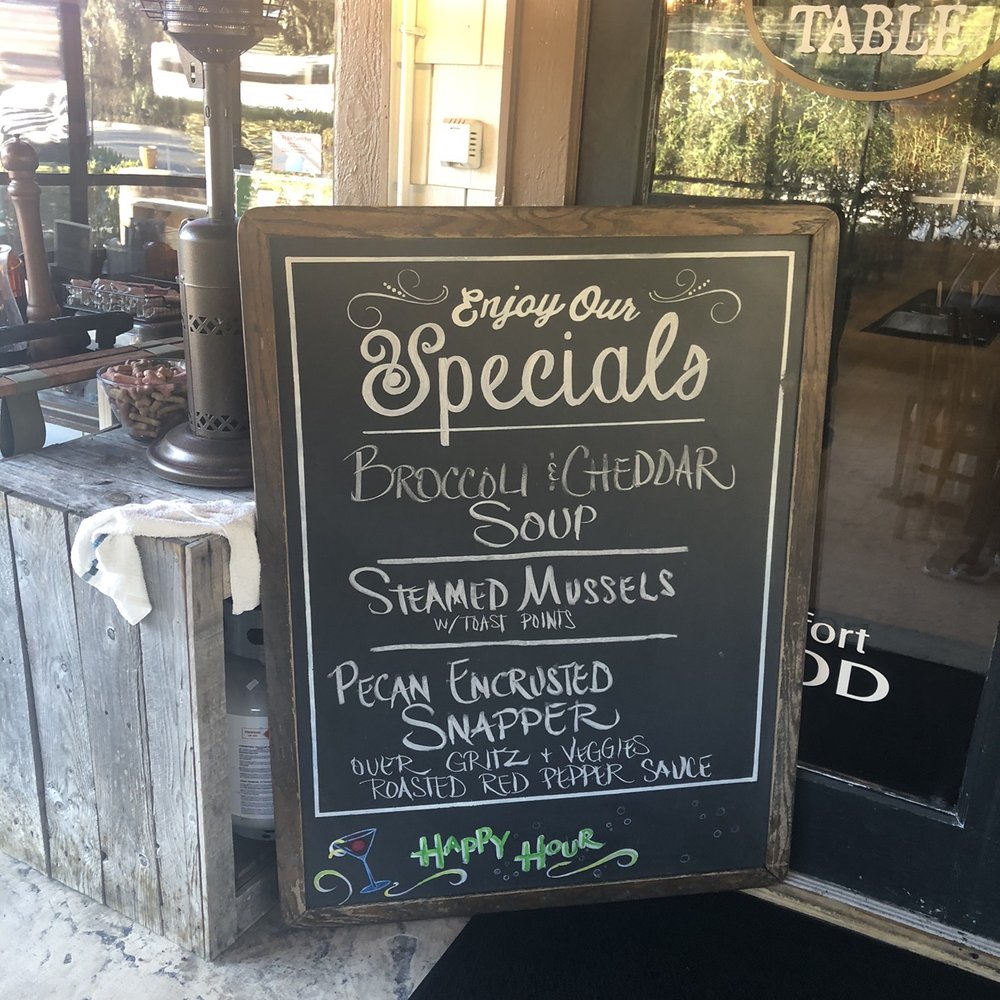 TABLE
Enjoy Our
Specials
BROCCOLI & CHEDDAR
SOUP
STEAMED MUSSELS
W/ TOAST POINTS
PECAN ENCRUSTED
SNAPPER
OVER GRITZ + VEGGIES
ROASTED RED PEPPER SAUCE
HAPPY HOUR
fort
OD